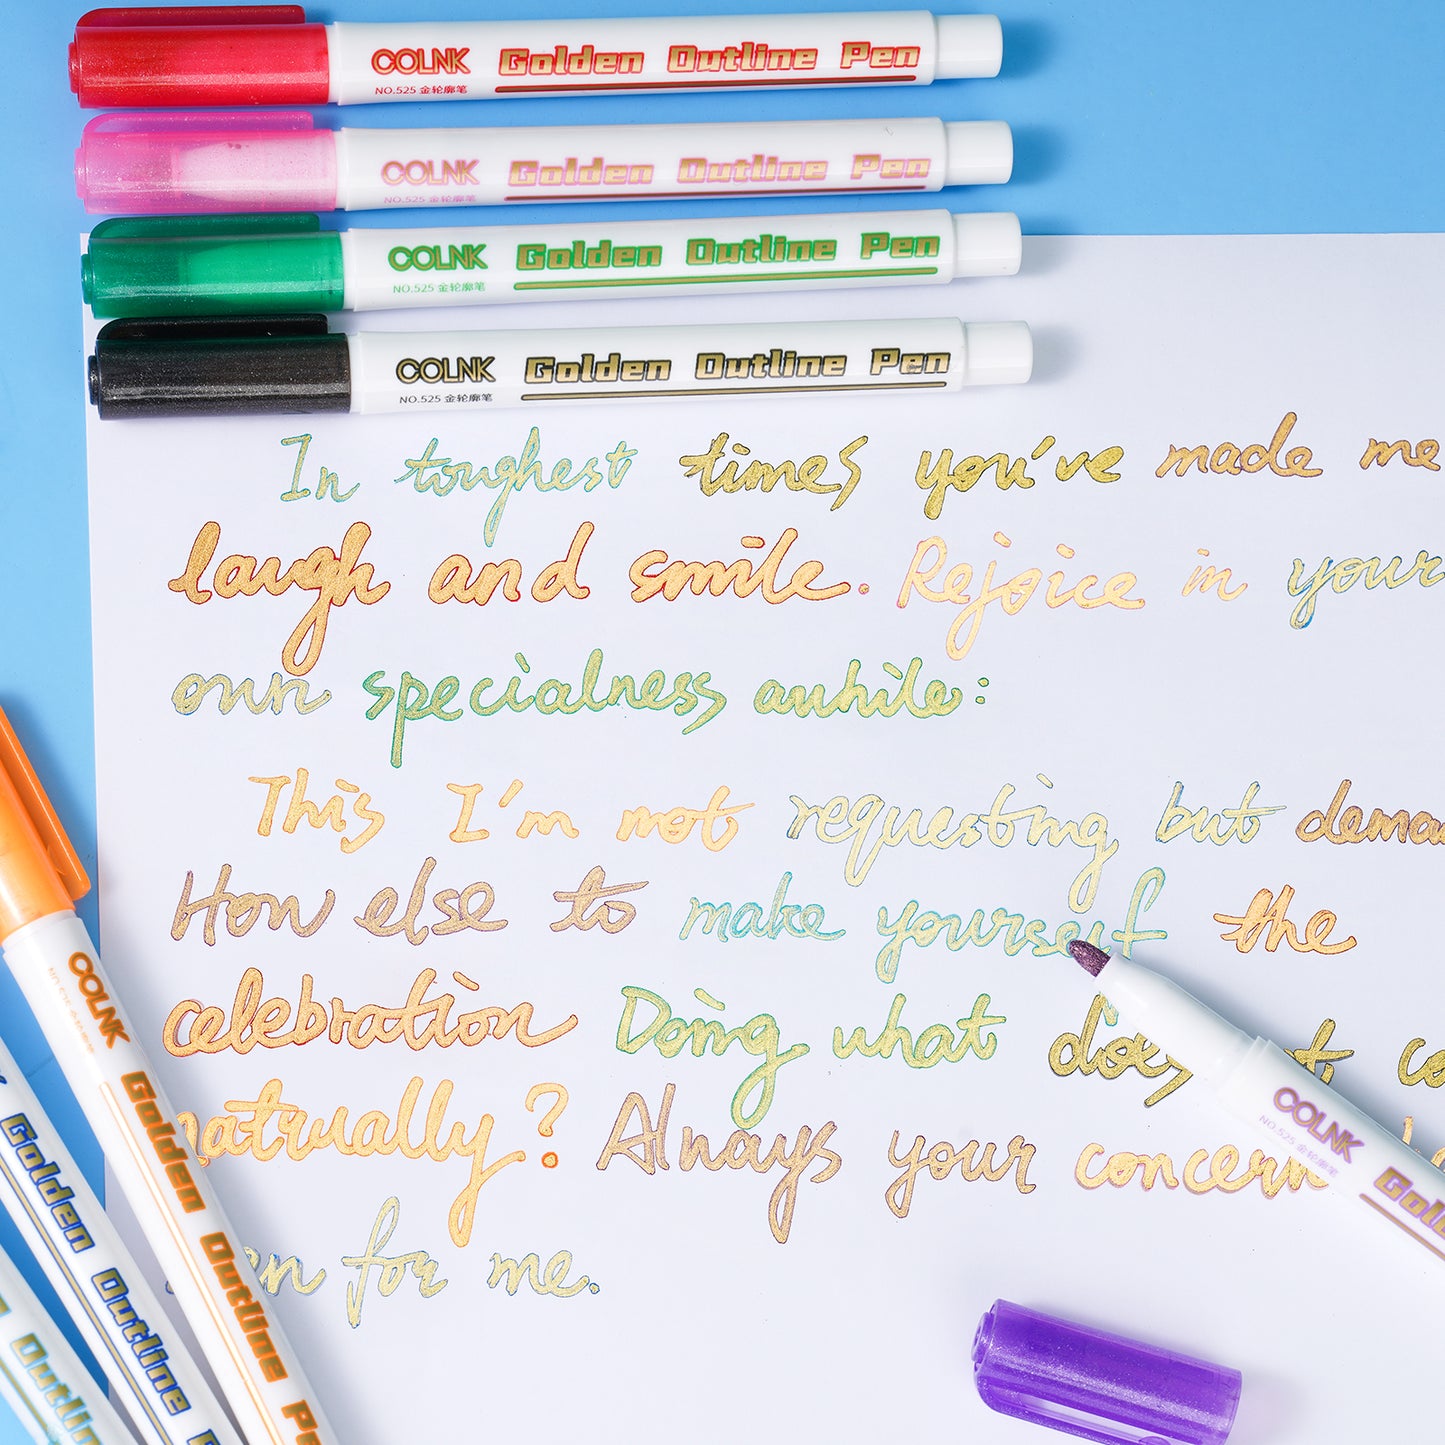 COLNK Golden Outline Pen
NO.525 金轮廓笔
COLNK Golden Outline Pen
NO.525 金轮廓笔
COLNK Golden Outline Pen
NO.525 金轮廓笔
COLNK Golden Outline Pen
NO.525 金轮廓笔
In toughest times you've made me
laugh and smile. Rejoice in your
own specialness awhile:
This I'm not requesting but
How else to make yourself the
celebration Doing what
natrually? Always your concern
for me.
COLNK Golden Outline
NO.525 金轮廓笔
Golden Outline
Outline
COLNK
NO.525 金轮廓笔